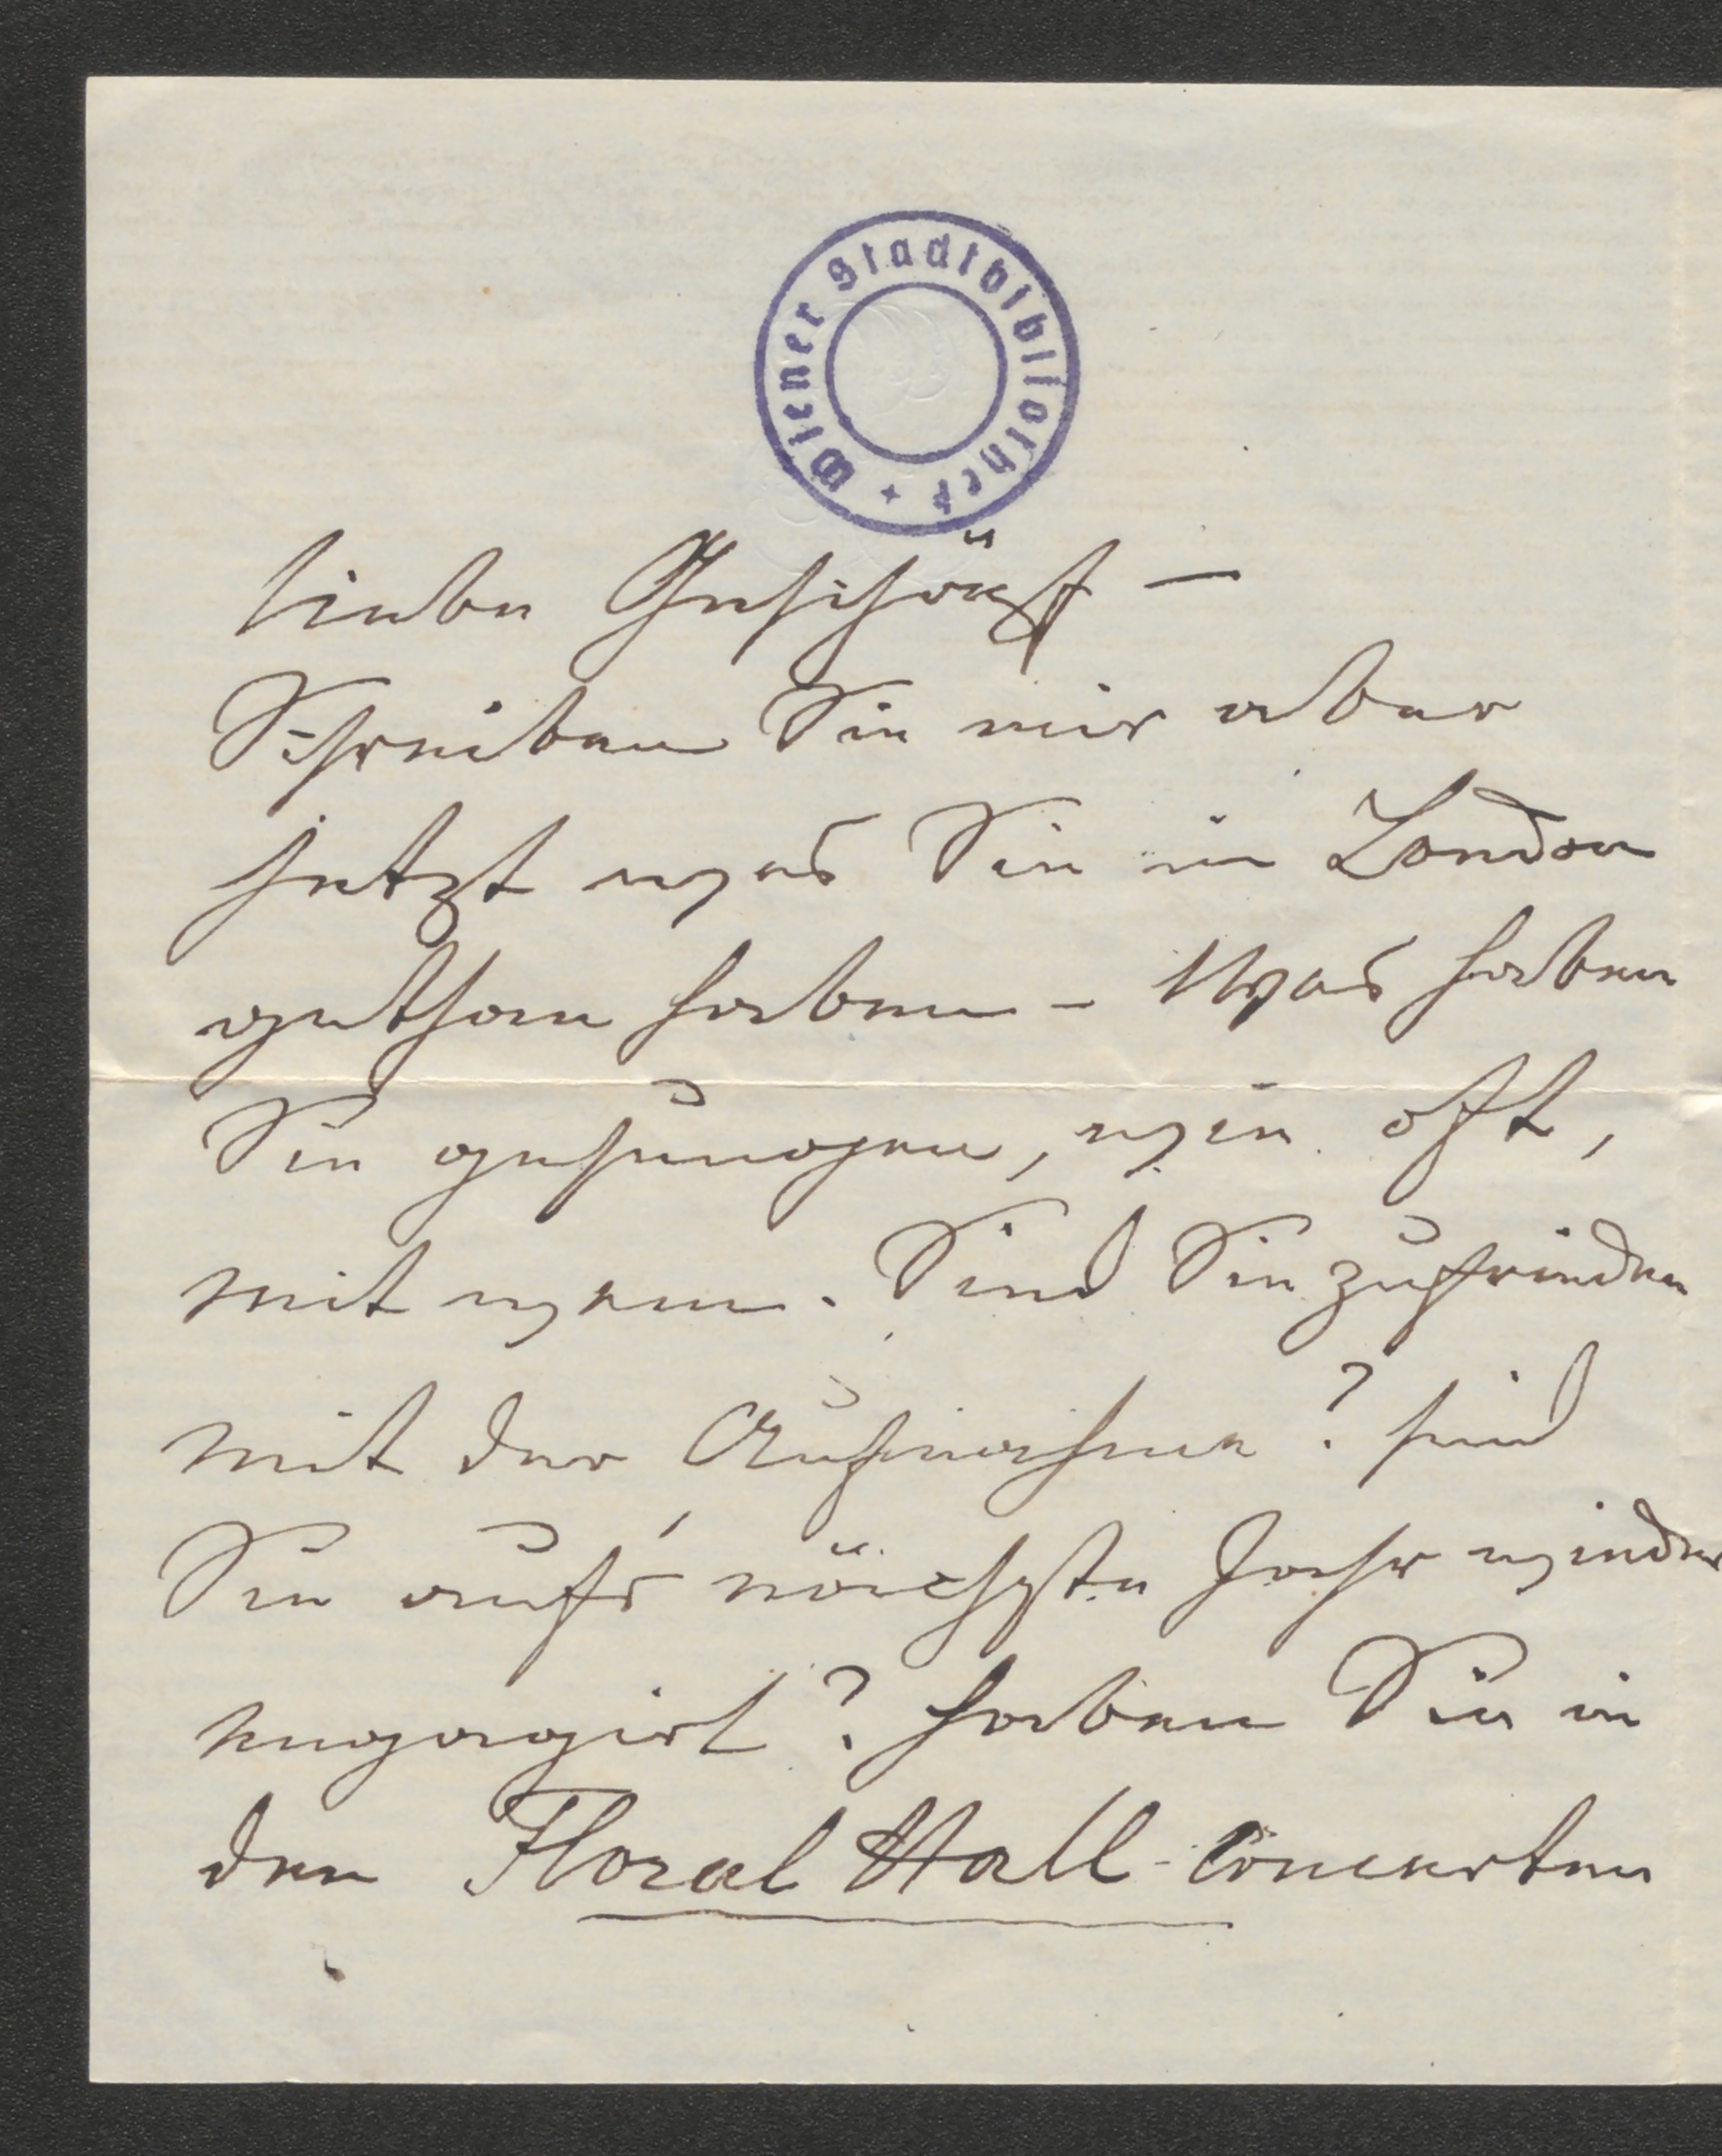 Wiener Stadtbibliothek
Liebe Geschäft —
Schreiben Sie mir aber
jetzt was Sie in London
gethan haben – Was haben
Sie gesungen, wie oft,
mit wem. Sind Sie zufrieden
mit der Aufnahme? sind
Sie aufs' nächste Jahr wieder
engagirt? haben Sie in
den Floral Hall-Concerten